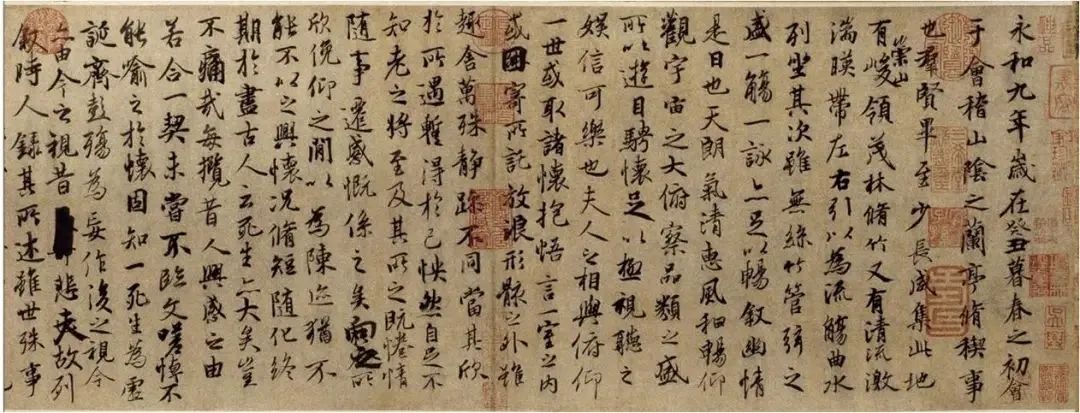 永和九年歲在癸丑暮春之初會
于會稽山陰之蘭亭脩禊事
也群賢畢至少長咸集此地
有崇山峻領茂林脩竹又有清流激
湍暎帶左右引以為流觴曲水
列坐其次雖無絲竹管弦之
盛一觴一詠亦足以暢敘幽情
是日也天朗氣清惠風和暢仰
觀宇宙之大俯察品類之盛
所以遊目騁懷足以極視聽之
娛信可樂也夫人之相與俯仰
一世或取諸懷抱悟言一室之內
或因寄所託放浪形骸之外雖
趣舍萬殊靜躁不同當其欣
於所遇暫得於己怏然自足不
知老之將至及其所之既惓情
隨事遷感慨係之矣向之所
欣俛仰之閒以為陳迹猶不
能不以之興懷況脩短隨化終
期於盡古人云死生亦大矣豈
不痛哉每攬昔人興感之由
若合一契未嘗不臨文嗟悼不
能喻之於懷固知一死生為虛
誕齊彭殤為妄作後之視今
亦由今之視昔悲夫故列
敘時人錄其所述雖世殊事